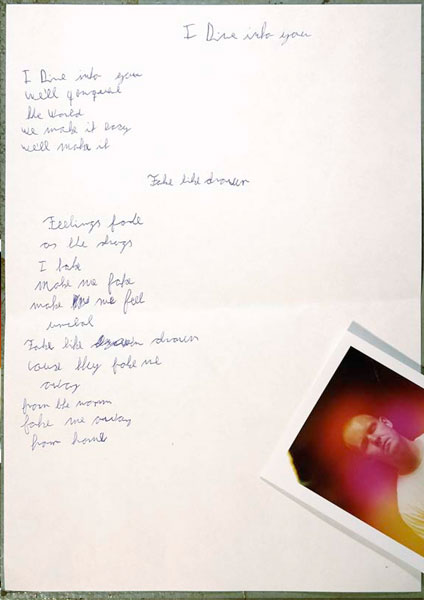 I Dive into you
I Dive into you
we'll
the world
we make it easy
we'll make it
Fake like drawen
Feelings fade
as the drugs
I take
make me fake
make me feel
unreal
Fake like drawen
cause they fake me
away
from the warm
fake me away
from home